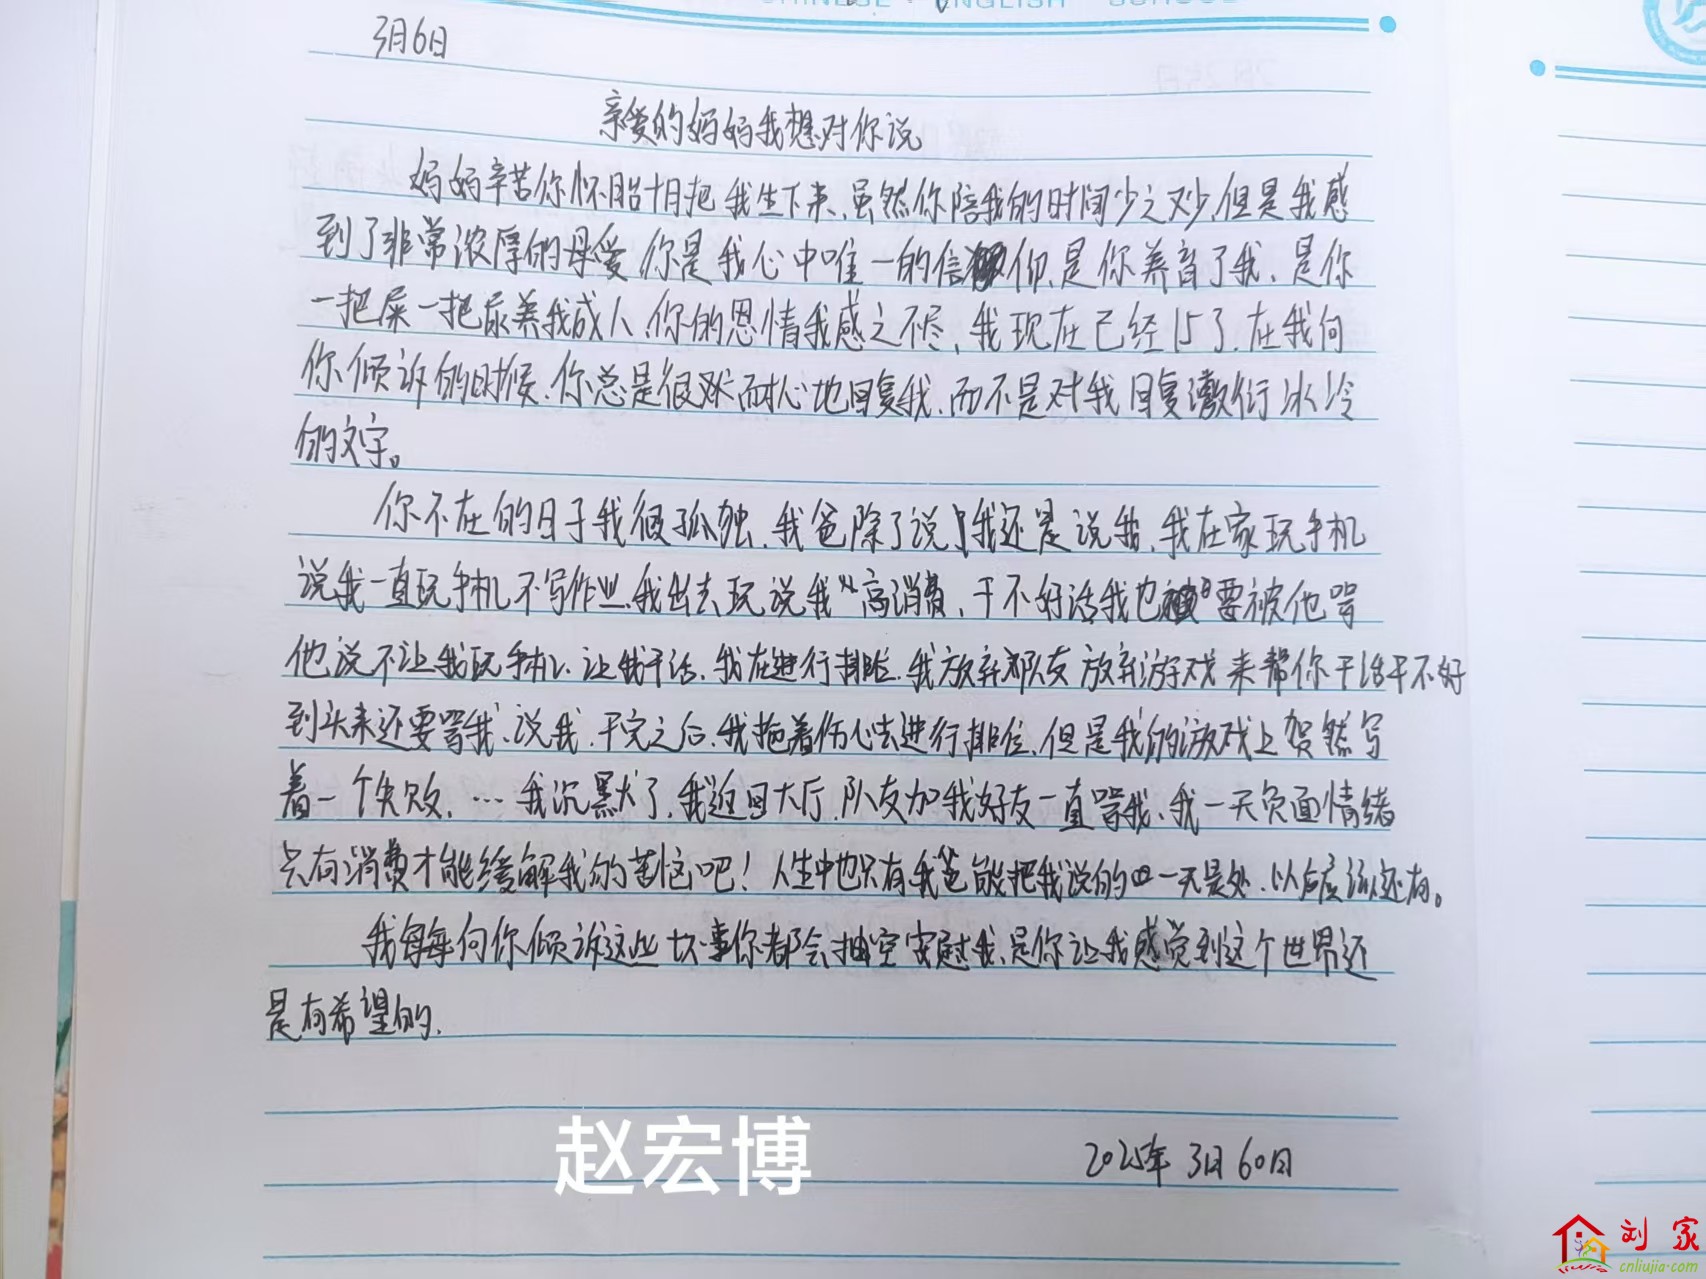 CHINESE · ENGLISH SCHOOL
3月6日
亲爱的妈妈我想对你说
妈妈辛苦你怀胎十月把我生下来、虽然你陪我的时间少之又少、但是我感
到了非常浓厚的母爱、你是我心中唯一的信仰、是你养育了我、是你
一把屎一把尿养我成人、你的恩情我感之不尽、我现在已经15了、在我向
你倾诉的时候、你总是很耐心地回复我、而不是对我回复敷衍冰冷
的文字。
你不在的日子我很孤独、我爸除了说我还是说我、我在家玩手机
说我一直玩手机不写作业、我出去玩说我“高消费、干不好活我也”要被他骂
他说不让我玩手机、让我干活、我在进行排位、我放弃队友放弃游戏来帮你干活干不好
到头来还要骂我、说我、干完之后、我抱着伤心去进行排位、但是我的游戏上贺然写
着一个失败、…我沉默了、我返回大厅、队友加我好友一直骂我、我一天负面情绪
只有消费才能缓解我的苦恼吧！人生中也只有我爸能把我说的一无是处、以后应该还有。
我每每向你倾诉这些坏事你都会抽空安慰我、是你让我感觉到这个世界还
是有希望的、
赵宏博
2025年3月60日
刘家
cnliujia.com